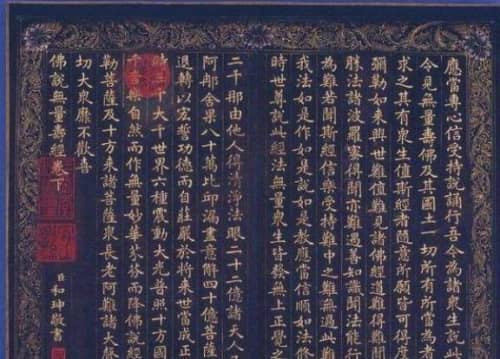 應當專心信受持說誦行吾今為諸衆生說
令見無量壽佛及其國土一切所有所當為
求之其有衆生值斯經者隨意所願皆可得
彌勒如來興世難值難見諸佛經道難得難聞
勝法諸波羅蜜得聞亦難遇善知識聞法能行
為難若聞斯經信樂受持難中之難無過此難
我法如是作如是說如是教應當信順如法修
時世尊說此經法無量衆生皆發無上正覺之
二千那由他人得清淨法眼二十二億諸天人
阿那含果八十萬比丘漏盡意解四十億菩薩
退轉以弘誓功德而自莊嚴於將來世當成正
時三千大千世界六種震動大光普照十方國
千音樂自然而作無量妙華芬芬而降佛說經
勒菩薩及十方來諸菩薩衆長老阿難諸大聲
切大衆靡不歡喜
佛說無量壽經卷下
臣和珅敬書